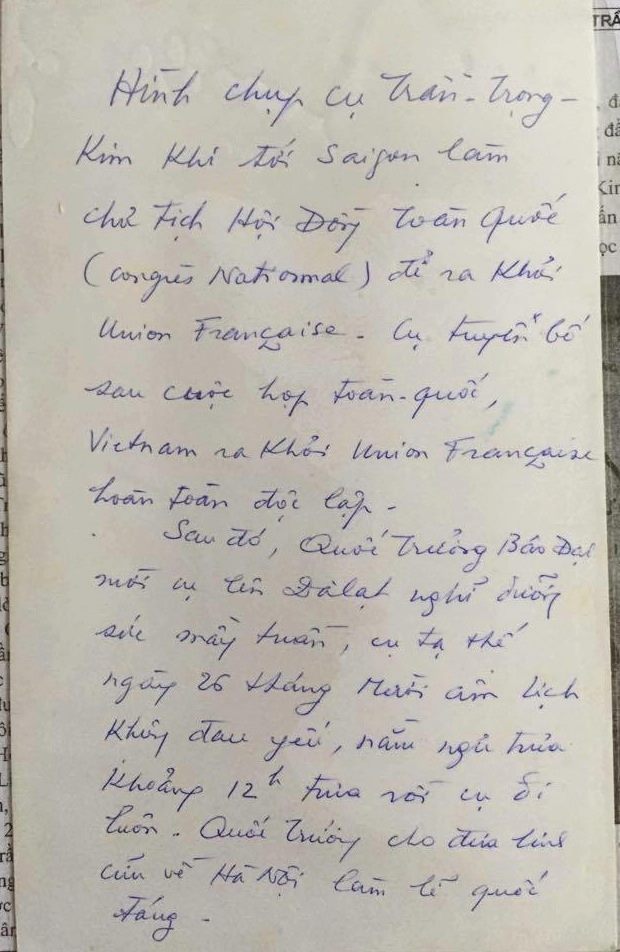 Hình chụp cụ Trần-Trọng-
Kim khi tới Saigon làm
chủ tịch Hội Đồng toàn quốc
(Congrès National) để ra khỏi
Union Française. Cụ tuyên bố
sau cuộc họp toàn-quốc,
Vietnam ra khỏi Union Française
hoàn toàn độc lập.
Sau đó, Quốc trưởng Bảo Đại
mời cụ lên Dalat nghỉ dưỡng
sức mấy tuần, cụ tạ thế
ngày 26 tháng Mười âm lịch
không đau yếu, nằm ngủ trưa
khoảng 12h trưa rồi cụ đi
luôn. Quốc trưởng cho đưa linh
cữu về Hà Nội làm lễ quốc
táng.
TRẦ